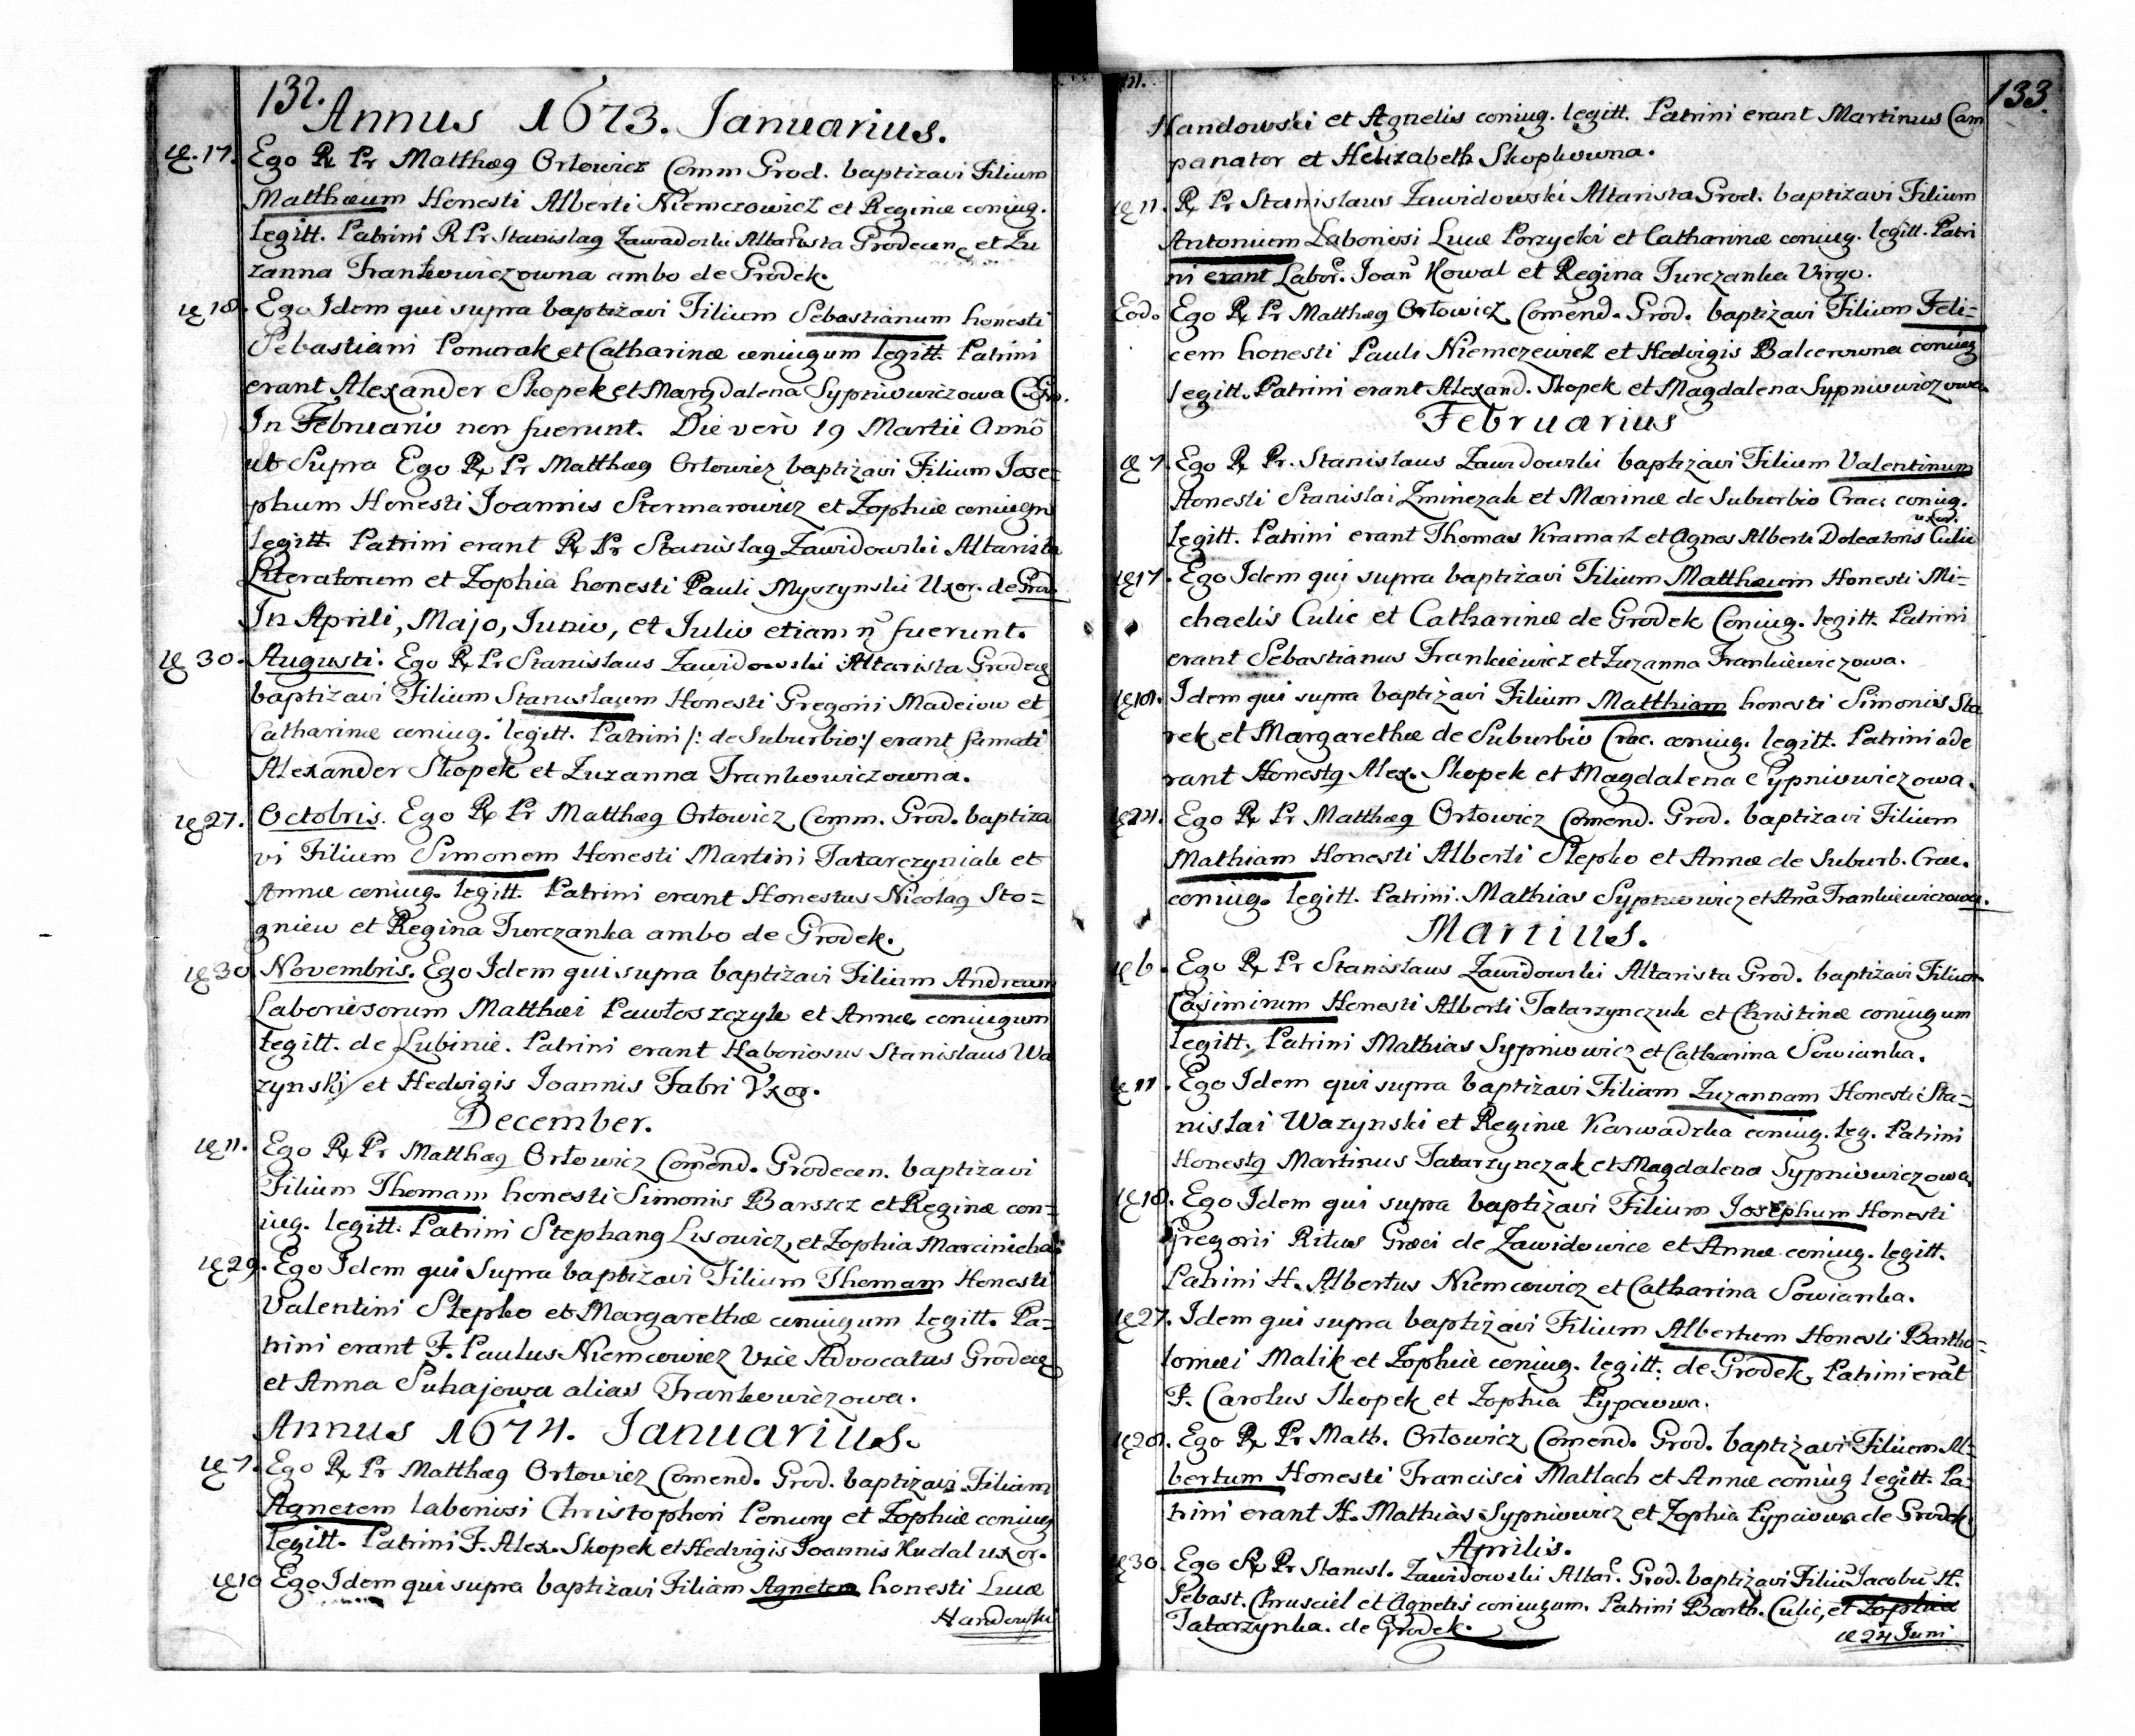 132.
Annus 1673. Januarius.
17. Ego R Pr Matthæq Orłowicz Comm Grod. baptizavi Filium
Matthæum Honesti Alberti Niemczowicz et Reginæ coniug.
legitt. Patrini R Pr Stanislaq Zawadoski Altarista Grodecen et Zu
zanna Frankowiczowna ambo de Grodek.
18. Ego Idem qui supra baptizavi Filium Sebastianum honesti
Sebastiani Pomorak et Catharinæ coniugum legitt. Patrini
erant Alexander Skopek et Margdalena Sypniowiczowa
In Februario non fuerunt. Die verò 19 Martii Annõ
ut Supra Ego R Pr Matthæq Orłowicz baptizavi Filium Jose=
phum Honesti Joannis Stermarowicz et Zophiæ coniugm
legitt. Patrini erant R Pr Stanislaq Zawidowski Altarista
Literatorum et Zophia honesti Pauli Myszynski Uxor. de Grod.
In Aprili, Majo, Junio, et Julio etiam ñ fuerunt.
30. Augusti. Ego R Pr Stanislaus Zawidowski Altarista Grodeq
baptizavi Filium Stanislaum Honesti Gregorii Madeiow et
Catharinæ coniug. legitt. Patrini /: de Suburbio :/ erant famati
Alexander Skopek et Zuzanna Frankowiczowna.
27. Octobris. Ego R Pr Matthæq Orłowicz Comm. Grod. baptiza
vi Filium Simonem Honesti Martini Tatarczyniak et
Annæ coniug. legitt. Patrini erant Honestus Nicolaq Sto=
gniew et Regina Turczanka ambo de Grodek.
30. Novembris. Ego Idem qui supra baptizavi Filium Andream
Laboriosorum Matthæi Pawłoszczyk et Annæ coniugum
legitt. de Lubinie. Patrini erant Laboriosus Stanislaus Wa
zynski et Hedvigis Joannis Fabri Vxor.
December.
11. Ego R Pr Matthæq Orłowicz Comend. Grodecen. baptizavi
Filium Thomam honesti Simonis Barszcz et Reginæ con=
iug. legitt. Patrini Stephanq Lisowicz, et Zophia
29. Ego Idem qui Supra baptizavi Filium Thomam Honesti
Valentini Slepko et Margarethæ coniugum legitt. Pa=
trini erant F. Paulus Niemcowicz Vice Advocatus Grodeq
et Anna Suhajowa alias Frankowiczowa.
Annus 1674. Januarius.
7. Ego R Pr Matthæq Orłowicz Comend. Grod. baptizavi Filiam
Agnetem laboriosi Christophori Ponury et Zophiæ coniug
legitt. Patrini F. Alex. Skopek et Hedvigis Joannis Kudal uxor.
10 Ego Idem qui supra baptizavi Filiam Agnetem honesti Lucæ
Handowski
133.
Handowski et Agnetis coniug. legitt. Patrini erant Martinus Cam
panator et Helizabeth Skopkowna.
11. R Pr Stanislaus Zawidowski Altarista Grod. baptizavi Filium
Antonium Laboriosi Lucæ Porzycki et Catharinæ coniug. legitt. Patri
ni erant Labor. Joañ Kowal et Regina Turczanka Virgo.
Eod. Ego R Pr Matthæq Orłowicz Comend. Grod. baptizavi Filium Feli=
cem honesti Pauli Niemczewicz et Hedvigis Balcerowna coniug
legitt. Patrini erant Alexand. Skopek et Magdalena Sypniowiczowa.
Februarius
7. Ego R Pr. Stanislaus Zawidowski baptizavi Filium Valentinum
Honesti Stanislai Zminczak et Marinæ de Suburbio Crac. coniug.
legitt. Patrini erant Thomas Kramarz et Agnes Alberti Doleatoris Culic uxor.
17. Ego Idem qui supra baptizavi Filium Matthæum Honesti Mi=
chaelis Culic et Catharinæ de Grodek Coniug. legitt. Patrini
erant Sebastianus Frankiewicz et Zuzanna Frankiewiczowa.
18. Idem qui supra baptizavi Filium Matthiam honesti Simonis Sta
rek et Margarethæ de Suburbio Crac. coniug. legitt. Patrini ade
rant Honestq Alex. Skopek et Magdalena Sypniowiczowa.
24. Ego R Pr Matthæq Orłowicz Comend. Grod. baptizavi Filium
Mathiam Honesti Alberti Slepko et Annæ de Suburb. Crac.
coniug. legitt. Patrini. Mathias Sypniowicz et Aña Frankiewiczowa.
Martius.
6. Ego R Pr Stanislaus Zawidowski Altarista Grod. baptizavi Filium
Casimirum Honesti Alberti Tatarzynczuk et Christinæ coniugum
legitt. Patrini Mathias Sypniowicz et Catharina Sowianka.
11. Ego Idem qui supra baptizavi Filiam Zuzannam Honesti Sta=
nislai Wazynski et Reginæ Karwadzka coniug. leg. Patrini
Honestq Martinus Tatarzynczak et Magdalena Sypniowiczowa.
18. Ego Idem qui supra baptizavi Filium Josephum Honesti
Gregorii Ritus Græci de Zawidowice et Annæ coniug. legitt.
Patrini H. Albertus Niemcowicz et Catharina Sowianka.
27. Idem qui supra baptizavi Filium Albertum Honesti Bartho=
lomæi Malik et Zophiæ coniug. legitt. de Grodek, Patrini erãt
F. Carolus Skopek et Zophia Pypciowa.
28. Ego R Pr Math. Orłowicz Comend. Grod. baptizavi Filium Al=
bertum Honesti Francisci Matlach et Annæ coniug legitt. Pa=
trini erant H. Mathias Sypniowicz et Zophia Pypciowa de Grodek.
Aprilis.
30. Ego R Pr Stanisl. Zawidowski Altar. Grod. baptizavi Filiũ Jacobũ H.
Sebast. Chrusciel et Agnetis coniugum. Patrini Barth. Culic, et Zophia
Tatarzynka. de Grodek.
24 Juni